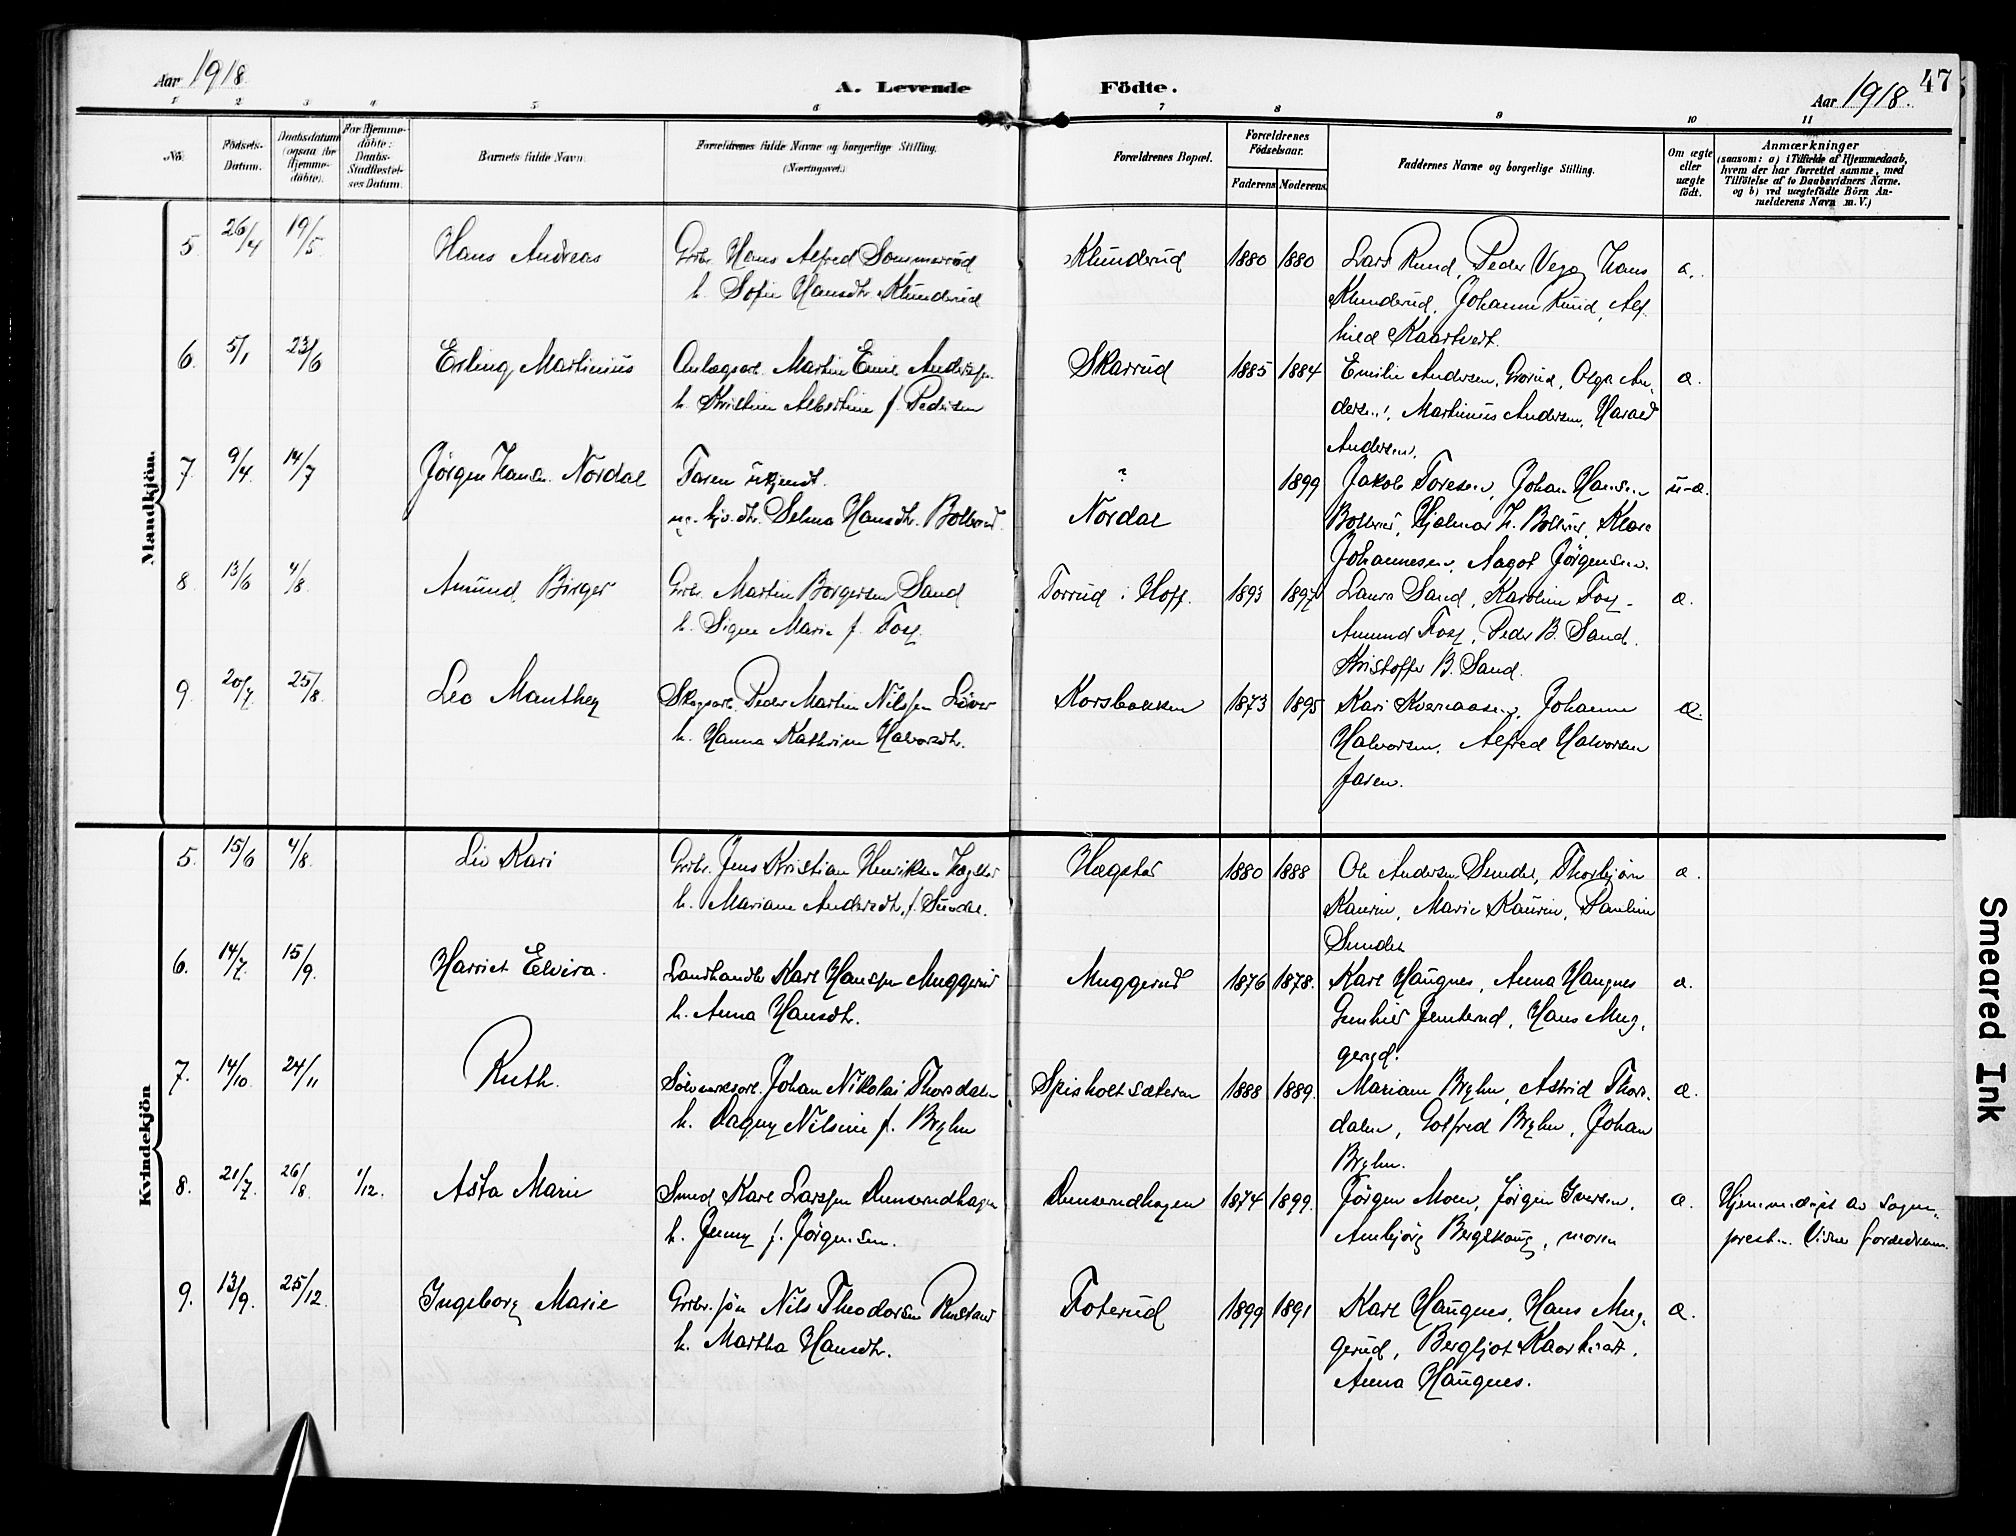 Aar 1918.
A. Levende Födte.
Aar 1918.
47
1 2 3 4 5 6 7 8 9 10 11
No.
Födsels-
Datum.
Daabsdatum
(ogsaa for
Hjemme-
döbte).
For Hjemme-
döbte:
Daabs-
Stadfæstel-
ses Datum.
Barnets fulde Navn.
Forældrenes fulde Navne og borgerlige Stilling.
(Næringsvei.)
Forældrenes Bopæl.
Forældrenes
Födselsaar.
Faderens
Moderens
Faddernes Navne og borgerlige Stilling.
Om ægte
eller
uægte
födt.
Anmærkninger
(saasom: a) i Tilfælde af Hjemmedaab,
hvem der har forrettet samme, med
Tilföielse af to Daabsvidners Navne.
og b) ved uægtefödte Börn An-
melderens Navn m. V.)
Mandkjön.
5 26/4 19/5 Hans Andreas
Grbr. Hans Alfred Sommerrud
h. Sofie Hansdtr. Klunderud
Klunderud 1880 1880
Lars Ruud, Peder Vego, Hans
Klunderud, Johanne Ruud, Alf-
hild Kaartvedt.
æ.
6. 5/1 23/6 Erling Martinius
Anlægsarb. Martin Emil Andersen
h. Kristine Albertine f. Pedersen
Skarrud 1885 1884
Emilie Andersen, Grorud, Olga An-
dersen, Martinius Andersen, Harald
Andersen.
æ.
7 9/4 14/7 Jørgen Hansen Nordal
Faren ukjendt.
Selma Hansdtr. Bollerud.
?
Nordal 1899
Jakob Toresen, Johan Hansen
Bollerud, Hjalmar H. Bollerud, Klara
Johannesen, Aagot Jørgensen.
u-æ.
8 13/6 4/8 Amund Birger
Grbr. Martin Borgersen Sand
h. Signe Marie f. Foss
Torrud i Hoff. 1893 1897
Laura Sand, Karoline Foss
Amund Foss, Peder B. Sand.
Kristoffer B. Sand.
æ.
9. 20/7 25/8 Leo Manthey
Skogsarb. Peder Martin Nilssen Liøver
h. Hanna Kathrine Halvorsdtr.
Korsbakken 1873 1895
Kari Kvernaasen, Johanne
Halvorsen, Alfred Halvorsen
faren.
æ.
Kvindekjön
5. 15/6 4/8 Liv Kari
Grbr. Jens Kristian Henriksen Hægstad
h. Mariane Andersdtr. f. Sundet.
Hægstad 1880 1888
Ole Andersen Sundet, Thorbjørn
Kaurin, Marie Kaurin, Pauline
Sundet
æ.
6. 14/7. 15/9. Harriet Elvira.
Landhandler Karl Hanssen Muggerud
h. Anna Hansdtr.
Muggerud 1876 1878.
Karl Haugnes, Anna Haugnes
Gunhild Jemterud, Hans Mug-
gerud.
æ.
7. 14/10. 24/11 Ruth.
Sølvverksarb. Johan Nikolai Thorsdalen
h. Dagny Nilsine f. Bryhn
Spisholtsæteren 1888 1889.
Mariane Bryhn, Astrid Thors-
dalen, Gotfred Bryhn, Johan
Bryhn.
æ.
8. 21/7. 26/8. 1/12. Asta Marie
Smed Karl Larssen Dunserudhagen
h. Jenny f. Jørgensen.
Dunserudhagen 1874 1899.
Jørgen Moen, Jørgen Iversen,
Annbjørg Bergskaug, moren
æ.
Hjemmedøpt av sogne-
presten.
9. 13/9. 25/12. Ingeborg Marie
Grbr. søn Nils Theodorsen Rustand
h. Martha Hansdtr.
Foterud 1899 1891
Karl Haugnes, Hans Mug-
gerud, Bergljot Kaartvedt,
Anna Haugnes.
æ.
Smeared Ink